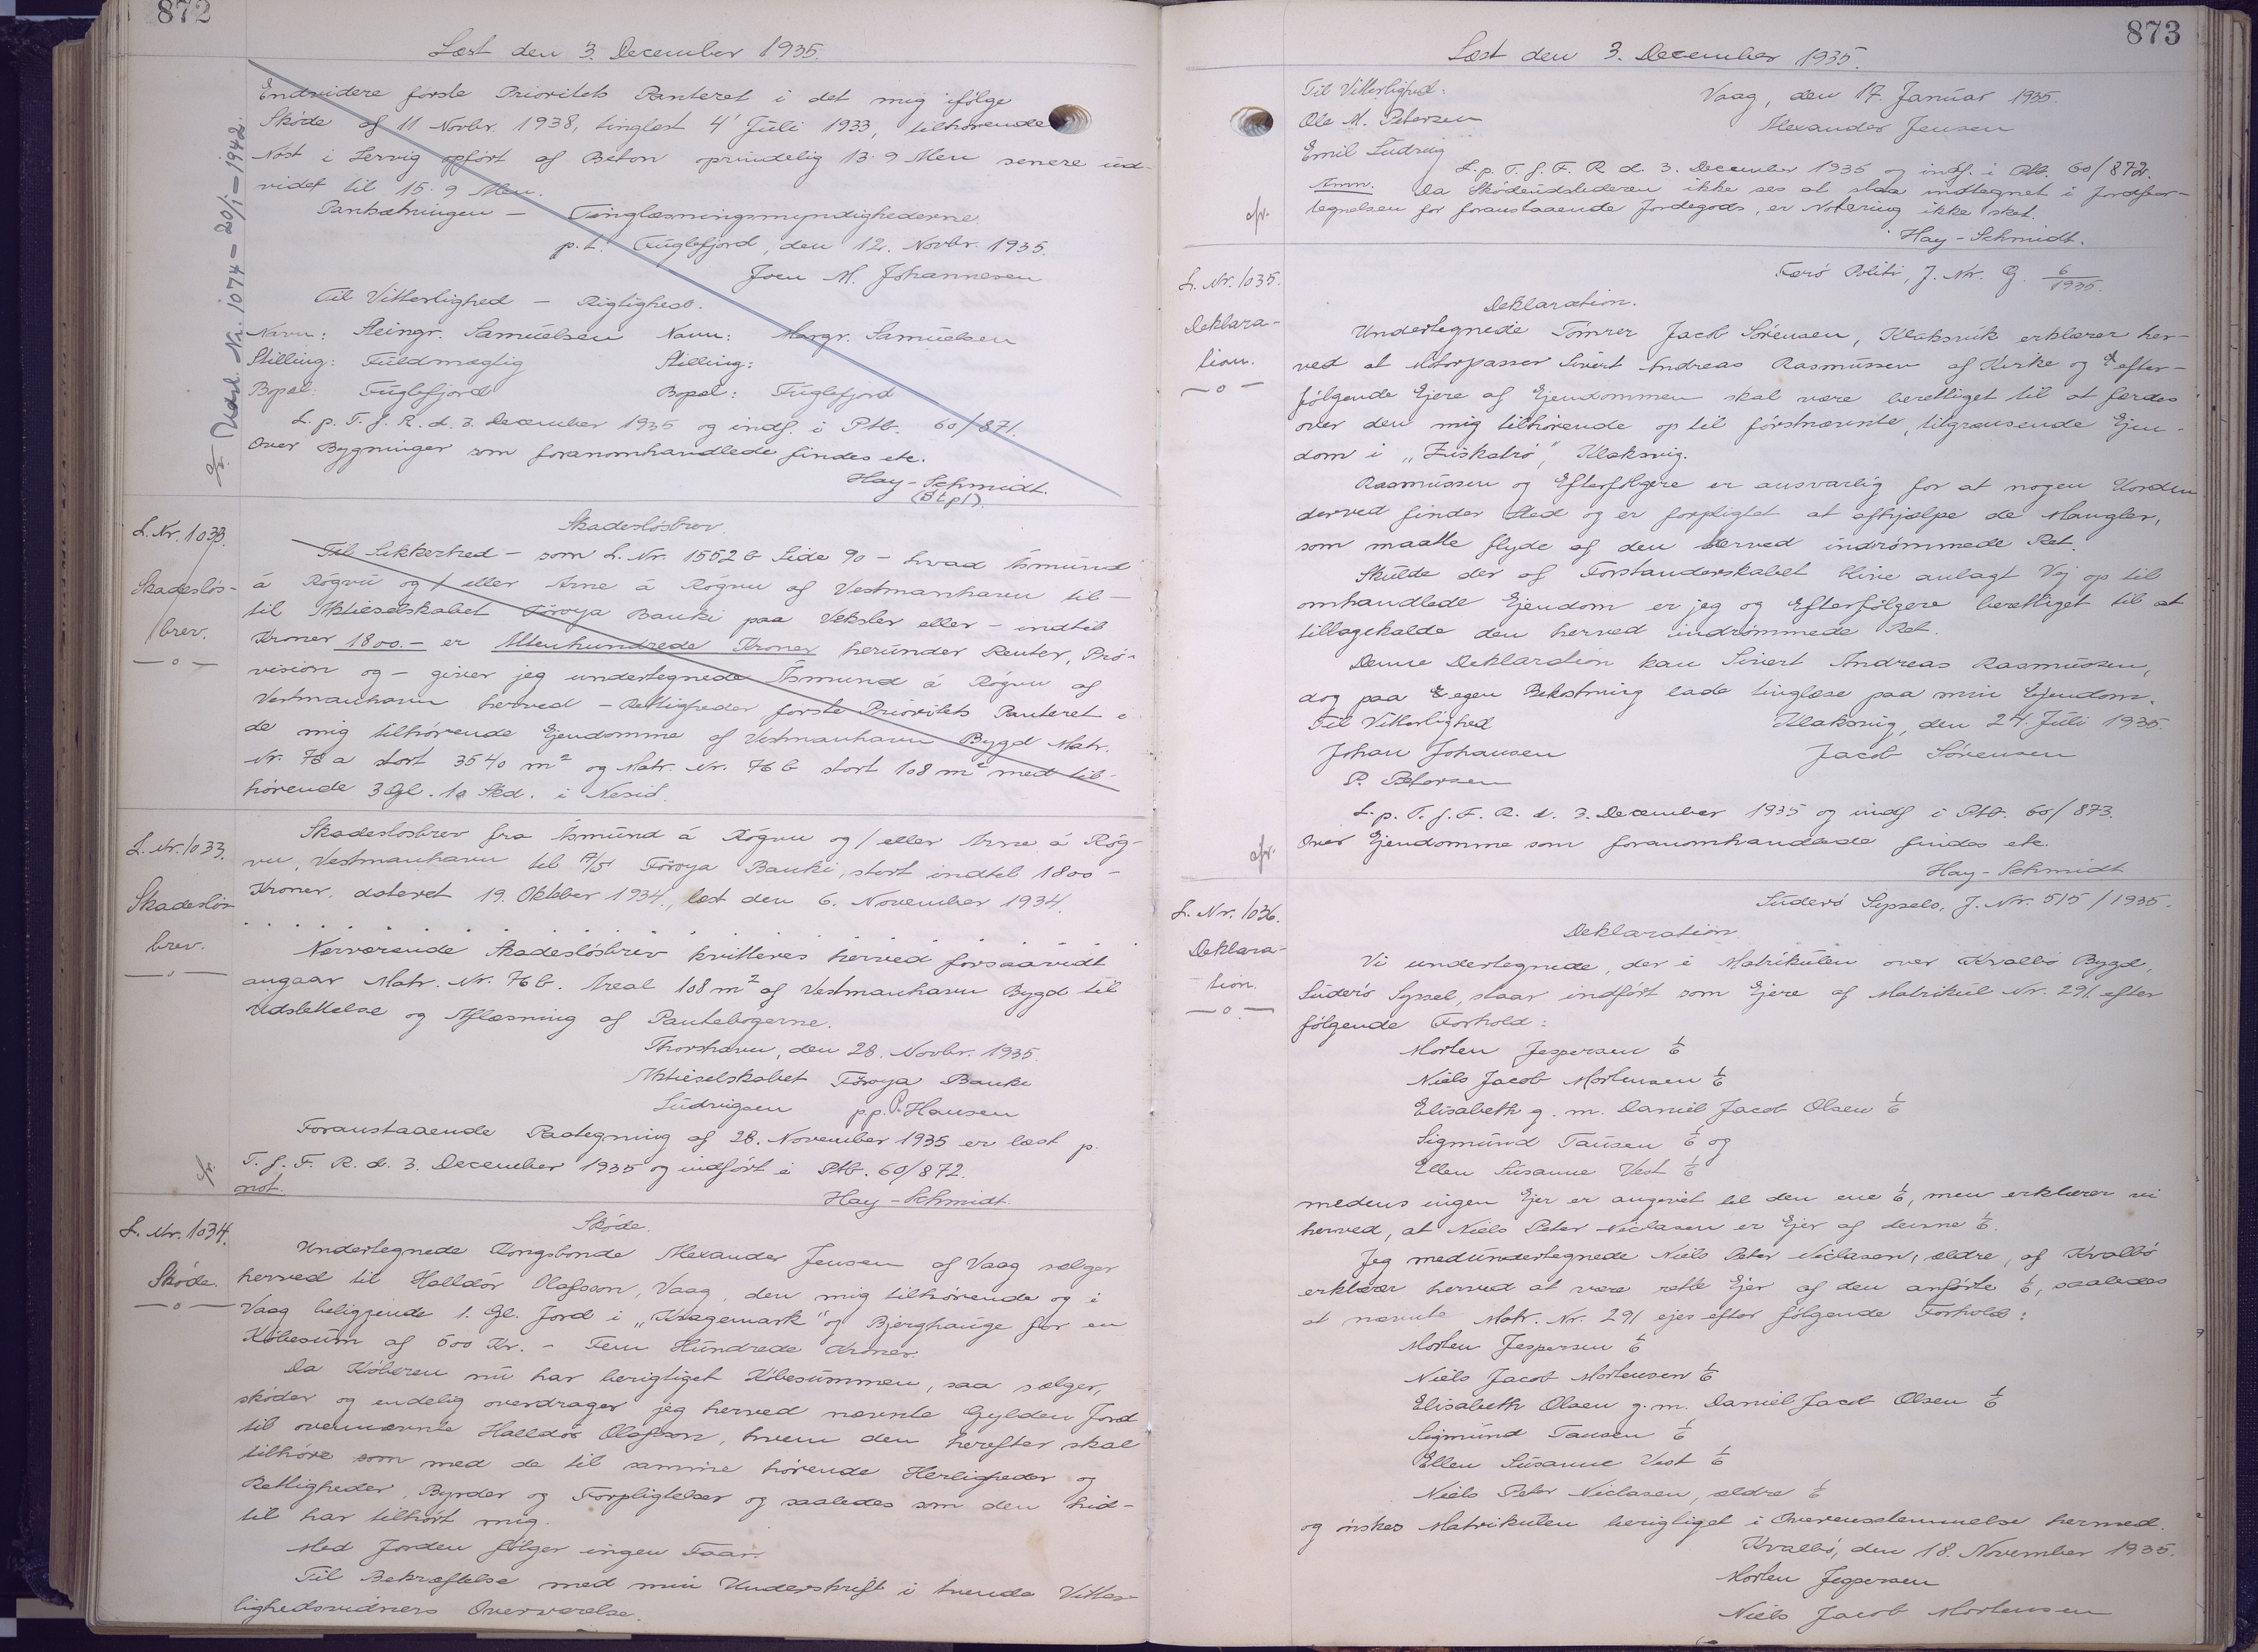 872
Læst den 3. December 1935.
Endvidere første Prioritets Panteret i det mig ifølge
Skøde af 11 Novbr. 1938, tinglæst 4' Juli 1933, tilhørende
Nøst i Lervig opført af Beton oprindelig 13·9 Alen senere ud-
videt til 15·9 Alen.
Pantsætningen – Tinglæsningsmyndighederne
p.t. Fuglefjord, den 12. Novbr. 1935.
Joen M. Johannesen
Til Vitterlighed – Rigtighed.
Navn: Steingr. Samuelsen Navn: Margr. Samuelsen
Stilling: Fuldmægtig Stilling:
Bopæl: Fuglefjord Bopæl: Fuglefjord
L. p. T. f. R. d. 3. December 1935 og indf. i Ptb. 60/871.
Over Bygninger som foranomhandlede findes etc.
Hay-Schmidt.
(Stpl)
Udsl. Nr. 1074 – 20/1 – 1942.
L. Nr. 1033.
Skadesløs-
brev.
Skadesløsbrev.
Til Sikkerhed – som L. Nr. 1552 b Side 90 – hvad Ásmund
á Rógvu og / eller Arne á Rógvu af Vestmanhavn til –
til Aktieselskabet Føroya Banki paa Veksler eller – indtil
Kroner 1800.– er Attenhundrede Kroner herunder Renter, Pro-
vision og – giver jeg undertegnede Ásmund á Rógvu af
Vestmanhavn herved – Rettigheder første Prioritets Panteret i
de mig tilhørende Ejendomme af Vestmanhavn Bygd Matr.
Nr. 76 a stort 3540 m² og Matr. Nr. 76 b stort 108 m² med til-
hørende 3 Gl. 10 Skd. i Nesið.
L. Nr. 1033.
Skadesløs-
brev.
Skadesløsbrev fra Ásmund á Rógvu og / eller Arne á Róg-
vu, Vestmanhavn til A/S Føroya Banki, stort indtil 1800 –
Kroner, dateret 19. Oktober 1934., læst den 6. November 1934.
Nærværende Skadesløsbrev kvitteres herved forsaavidt
angaar Matr. Nr. 76 b. Areal 108 m² af Vestmanhavn Bygd til
Udslettelse og Aflæsning af Pantebøgerne.
Thorshavn, den 28. Novbr. 1935.
Aktieselskabet Føroya Banki
Ludvigsen p.p. P. Hansen
Foranstaaende Paategning af 28. November 1935 er læst p.
T. f. F. R. d. 3. December 1935 og indført i Ptb. 60/872.
not.
Hay-Schmidt.
L. Nr. 1034.
Skøde.
Skøde.
Undertegnede Kongsbonde Alexander Jensen af Vaag sælger
herved til Halldór Olafsson, Vaag, den mig tilhørende og i
Vaag beliggende 1. Gl. Jord i „Kragemark" og Bjerghauge for en
Købesum af 500 Kr. – Fem Hundrede Kroner.
Da Køberen nu har berigtiget Købesummen, saa sælger,
skøder og endelig overdrager jeg herved nævnte Gylden Jord
til ovennævnte Halldór Olafsson, hvem den herefter skal
tilhøre som med de til samme hørende Herligheder og
Rettigheder, Byrder og Forpligtelser og saaledes som den hid-
til har tilhørt mig.
Med Jorden følger ingen Faar.
Til Bekræftelse med min Underskrift i tvende Vitter-
lighedsvidners Overværelse.
873
Læst den 3. December 1935.
Til Vitterlighed: Vaag, den 17. Januar 1935.
Ole M. Petersen Alexander Jensen
Emil Ludvig
L. p. T. f. F. R. d. 3. December 1935 og indf. i Ptb. 60/872.
Anm. Da Skødeudstederen ikke ses at staa indtegnet i Jordfor-
tegnelsen for foranstaaende Jordegods, er Notering ikke sket.
Hay-Schmidt.
L. Nr. 1035.
Deklara-
tion.
Færø Politi, J. Nr. G. 6/1935.
Deklaration.
Undertegnede Tømrer Jacob Sørensen, Klaksvik erklærer her-
ved at Motorpasser Sivert Andreas Rasmussen af Kirke og efter-
følgende Ejere af Ejendommen skal være berettiget til at færdes
over den mig tilhørende op til førstnævnte, tilgrænsende Ejen-
dom i Klaksvig.
Rasmussen og Efterfølgere er ansvarlig for at nogen Uorden
derved finder Sted og er forpligtet at afhjælpe de Mangler,
som maatte flyde af den herved indrømmede Ret.
Skulde der af Forstanderskabet blive anlagt Vej op til
omhandlede Ejendom er jeg og Efterfølgere berettiget til at
tilbagekalde den herved indrømmede Ret.
Denne Deklaration kan Sivert Andreas Rasmussen,
dog paa egen Bekostning lade tinglæse paa min Ejendom.
Til Vitterlighed Klaksvig, den 24. Juli 1935.
Johan Johansen Jacob Sørensen
P. Petersen
L. p. T. f. F. R. d. 3. December 1935 og indf i Ptb. 60/873.
Over Ejendomme som foranomhandlede findes etc.
Hay-Schmidt
L. Nr. 1036.
Deklara-
tion.
Suderø Syssels, J. Nr. 515/1935.
Deklaration
Vi undertegnede, der i Matrikulen over Kvalbø Bygd,
Suderø Syssel, staar indført som Ejere af Matrikul Nr. 291 efter
følgende Forhold:
Morten Jespersen 1/6
Niels Jacob Mortensen 1/6
Elisabeth g. m. Daniel Jacob Olsen 1/6
Sigmund Tausen 1/6 og
Ellen Susanne Vest 1/6
medens ingen Ejer er angivet til den ene 1/6, men erklærer vi
herved, at Niels Peter Niclasen er Ejer af denne 1/6.
Jeg medundertegnede Niels Peter Niclasen, ældre, af Kvalbø
erklærer herved at være rette Ejer af den anførte 1/6, saaledes
at nævnte Matr. Nr. 291 ejes efter følgende Forhold:
Morten Jespersen 1/6
Niels Jacob Mortensen 1/6
Elisabeth Olsen g. m. Daniel Jacob Olsen 1/6
Sigmund Tausen 1/6
Ellen Susanne Vest 1/6
Niels Peter Niclasen, ældre 1/6
og ønskes Matrikulen berigtiget i Overensstemmelse hermed.
Kvalbø, den 18. November 1935.
Morten Jespersen
Niels Jacob Mortensen